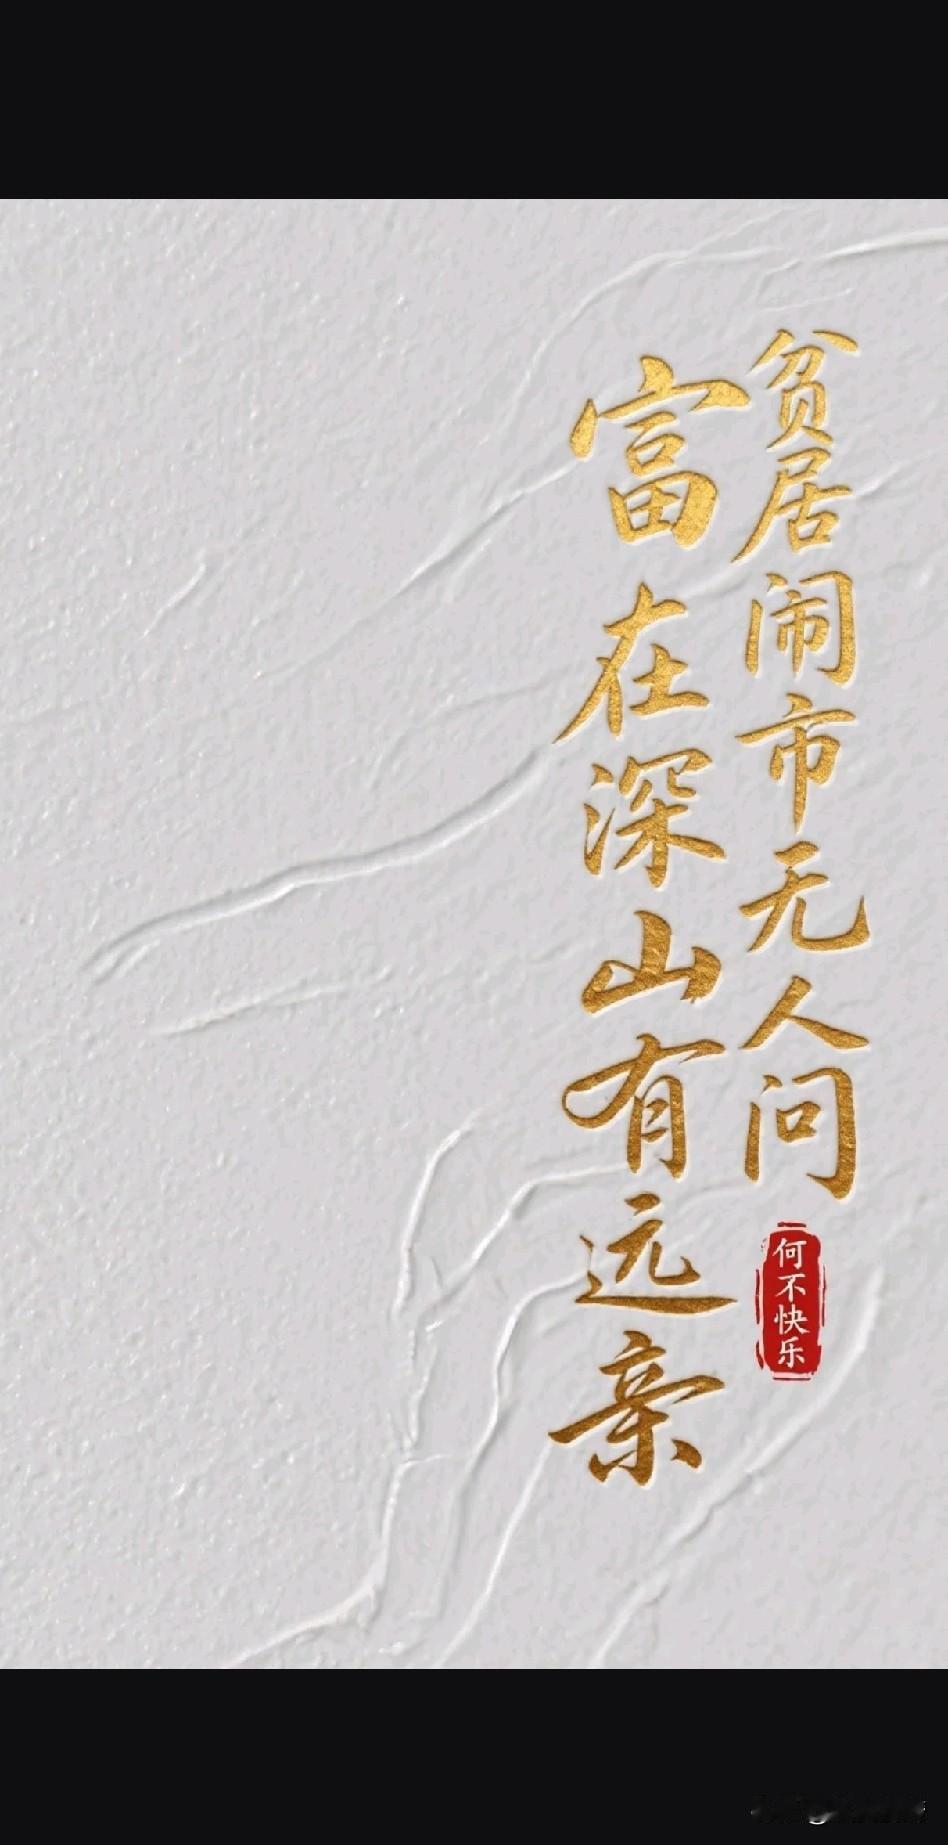 贫居闹市无人问
富在深山有远亲
何不快乐